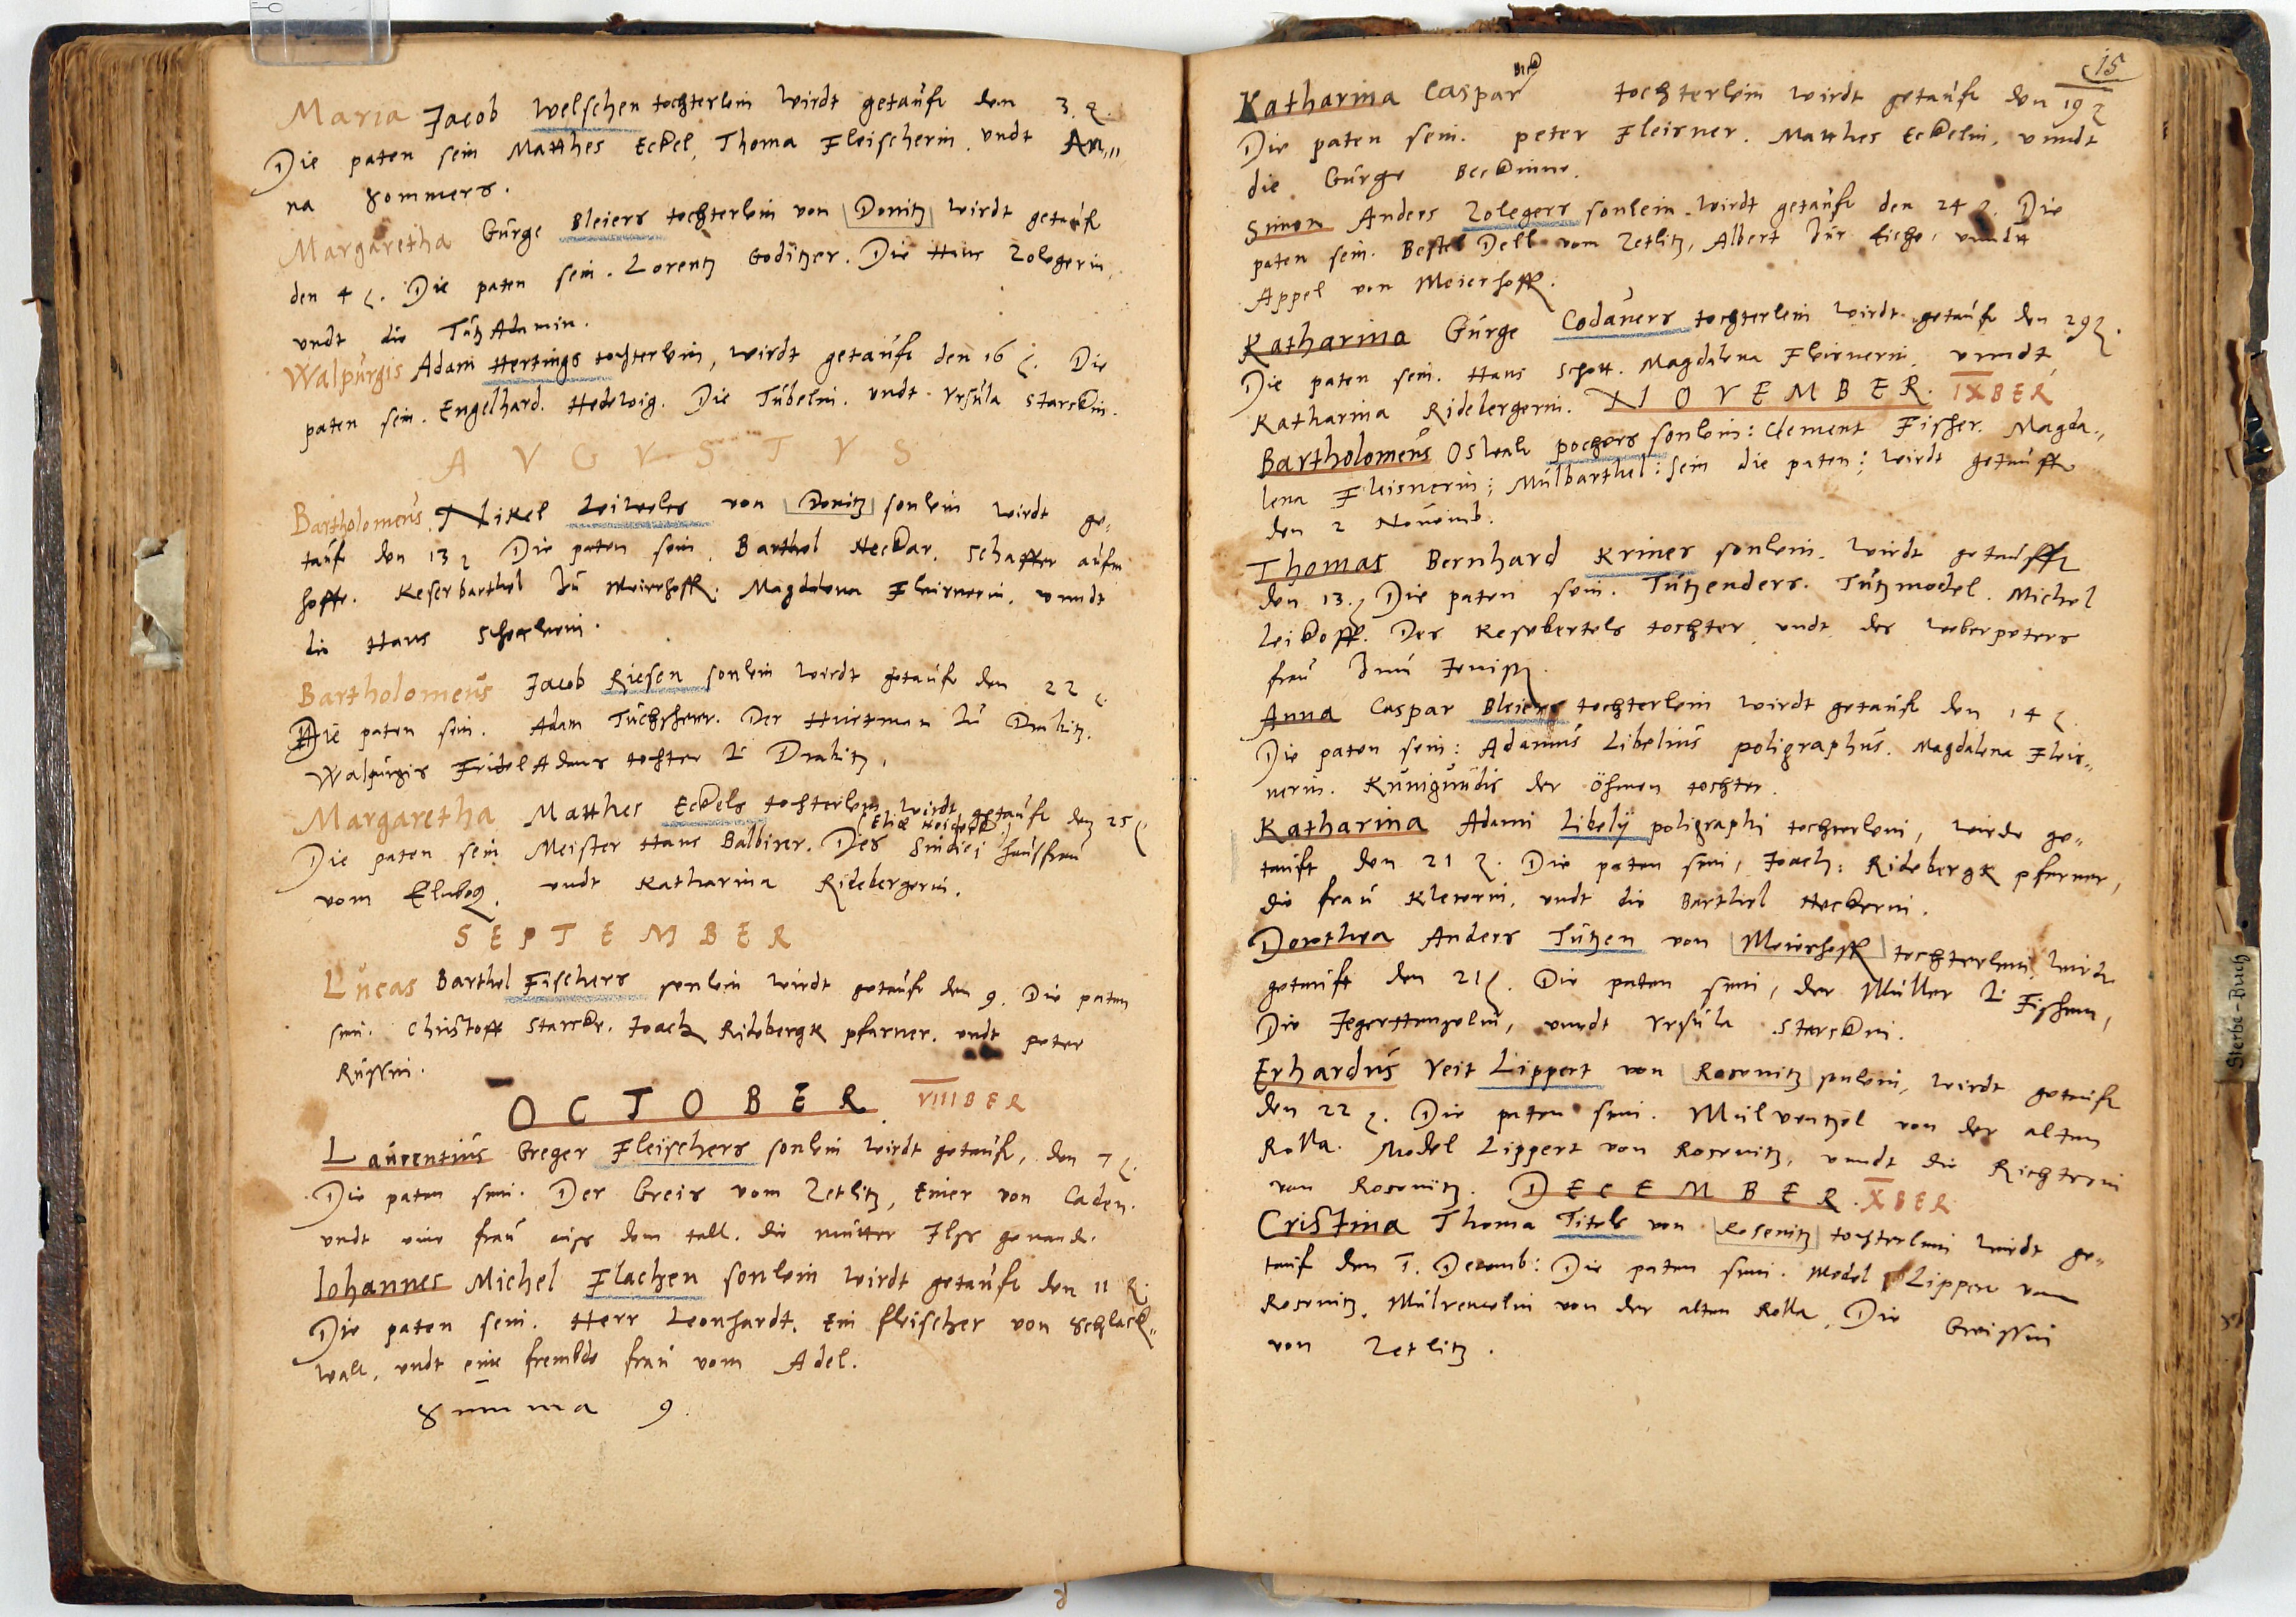 Maria Jacob Welschen tochterlein wirdt getauft den 3.
Die paten sein Matthes Eckel, Thoma Fleischerin, undt An„
na Sommers.
Margaretha Gürge Bleiers tochterlein von Donitz wirdt getauft
den 4. Die paten sein. Lorentz Goditzer. Die Hans Zolegerin
undt die Tütz Adamin.
Walpürgis Adam Hertings tochterlein, wirdt getauft den 16. Die
paten sein. Engelhard. Hedewig. Die Tübelin. undt Ursula Starckin.
AVGVSTVS
Bartholomeus Nikel von Donitz sonlein wirdt ge„
tauft den 13 Die paten sein. Barthel Heckar. Schaffer aufm
hoffe. Keserbarthel zu Meierhoff. Magdalena Fleisnerin. unndt
die Hans
Bartholomeus Jacob Riesen sonlein wirdt getauft den 22
Die paten sein. Adam Tuchscherer. Der Huetman zu Drahitz.
Walpurgis Fridel Adams tochter zu Drahitz.
Margaretha Matthes Eckels tochterlein wirdt getauft den 25
Die paten sein Meister Hans Balbirer. Des Sindici hausfrau
vom Elnbog. undt Katharina Ridebergerin.
SEPTEMBER
Lucas Barthel Fischers sonlein wirdt getauft den 9. Die paten
sein. Christoff Starcke. Joach Ridebergk pfarner. undt peter
Rüssin.
OCTOBER. VIIIBER
Laurentius Greger Fleischers sonlein wirdt getauft, den 7
Die paten sein. Der Greis vom Zetlitz, Einer von Caden.
undt eine frau aus dem tall. die mutter Ilse genandt.
Iohannes Michel Flachen sonlein wirdt getauft den 11
Die paten sein. Herr Leonhardt. Ein fleischer von Schlack„
wall, undt eine frembde frau vom Adel.
Summa 9.
15
Katharina Caspar tochterlein wirdt getauft den 19
Die paten sein. peter Fleisner. Matthes Eckelin. unndt
die Gürge Beckinne.
Simon Anders Zolegers sonlein. wirdt getauft den 24. Die
paten sein. Bestel Dell vom Zetlitz, Albert zur Eiche, unndt
Appel von Meierhoff.
Katharina Gürge Codauers tochterlein wirdt getauft den 29
Die paten sein. Hans Schott. Magdalena Fleisnerin. unndt
Katharina Ridebergerin. NOVEMBER. IXBER
Bartholomeus Oswalt pochers sonlein: Clement Fischer. Magda„
lena Fleisnerin; Mülbarthel: sein die paten; wirdt getaufft
den 2 Novemb.
Thomas Bernhard Kriner sonlein. wirdt getaufft
den 13. Die paten sein. Tützenders. Tützmodel. Michel
Leikoff. Des Kesebertels tochter undt des Weberpeters
frau zum Jenisch.
Anna Caspar Bleiers tochterlein wirdt getauft den 14
Die paten sein: Adamus Libelius poligraphus. Magdalena Fleis„
nerin. Kunigundis der öhmen tochter.
Katharina Adami Libelij poligraphi tochterlein, wirdt ge„
tauft den 21. Die paten sein, Joach: Ridebergk pfarner,
die frau Klererin, undt die Barthel Heckerin.
Dorothea Anders Tützen von Meierhoff tochterlein wirdt
getauft den 21. Die paten sein, der Müller zu Fischern,
Die Jegerhenselin, unndt Ursula Starckin.
Erhardus Veit Lippert von Rosenitz sonlein, wirdt getauft
den 22. Die paten sein. Mülventzel von der alten
Rolla. Model Lippert von Rosenitz, unndt die Richterin
von Rosenitz. DECEMBER. XBER
Cristina Thoma Titels von Rosenitz tochterlein wirdt ge„
tauft den 1. Decemb: Die paten sein. Model Lippert von
Rosenitz, von der alten Rolla. Die Greissin
von Zetlitz.
Sterbe-Buch